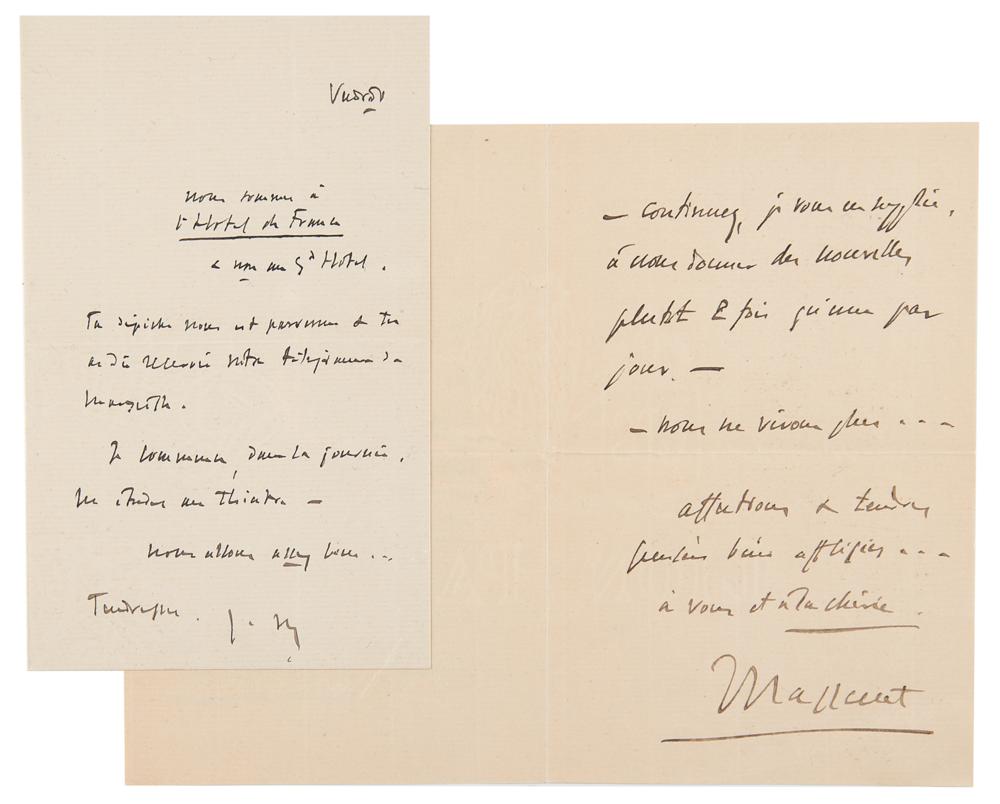 Vendredi
nous sommes à
l'Hôtel de France
& non au Gd Hôtel.
Ta dépêche nous est parvenue & tu
as dû recevoir notre télégramme de
Je commence, dans la journée,
les études au Théâtre —
nous allons assez bien...
Tendresses.
— continuez, je vous en supplie,
à nous donner des nouvelles
plutôt 2 fois qu'une par
jour. —
— nous ne vivons plus...
affectueuses & tendres
pensées bien affligées...
à vous et à la chérie.
Massenet